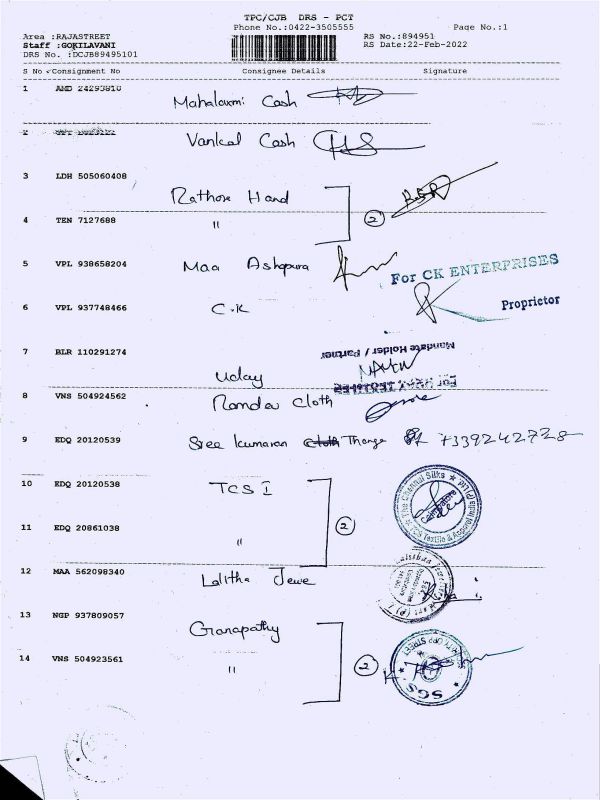 TPC/CJB DRS - PCT
Phone No.:0422-3505555 Page No.:1
Area :RAJASTREET RS No.:894951
Staff :GOKILAVANI RS Date:22-Feb-2022
DRS No. :DCJB89495101
S No Consignment No Consignee Details Signature
1 AMD 24293810 Mahalaxmi Cash
2 Cash
3 LDH 505060408 Rathore Hand
4 TEN 7127688 " 2
5 VPL 938658204 Maa Ashapura
For CK ENTERPRISES
6 VPL 937748466 C.K
Proprictor
7 BLR 110291274 Uday
Mandate Holder / Partner
8 VNS 504924562 Cloth
9 EDQ 20120539 Sree Kumaran Thanga
10 EDQ 20120538 TCS I
11 EDQ 20861038 " 2
The Chennai Silks
TCS Textile & Apparel India (P) Ltd
12 MAA 562098340 Lalitha Jewe
13 NGP 937809057 Ganapathy
14 VNS 504923561 " 2
SGS